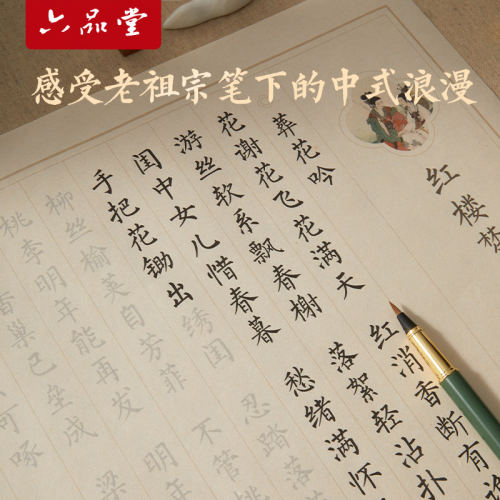 六品堂
感受老祖宗笔下的中式浪漫
红楼梦
葬花吟
花谢花飞花满天
红消香断有
游丝软系飘春榭
落絮轻沾扑
闺中女儿惜春暮
愁绪满怀
手把花锄出绣闺
忍踏落
柳丝榆荚自芳菲
不管
桃李明年能再发
明年
香巢已垒成
可啄